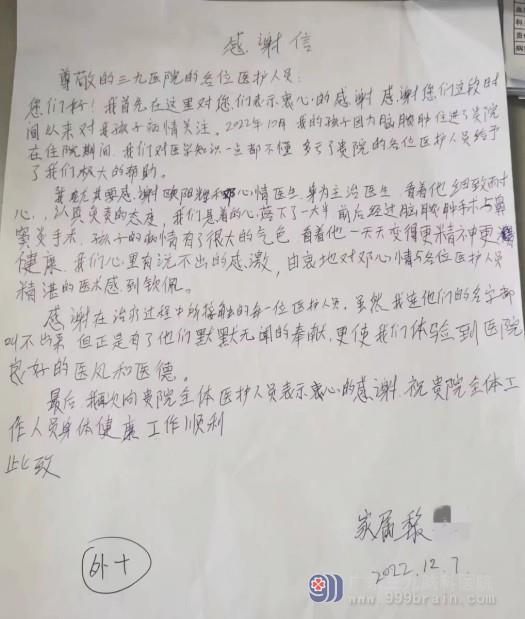 感谢信
尊敬的三九医院的各位医护人员:
您们好!我首先在这里对您们表示衷心的感谢 感谢您们这段时
间以来对我孩子病情关注。2022年10月 我的孩子因为脑脓肿住进了贵院
在住院期间 我们对医学知识一点都不懂 多亏了贵院的各位医护人员给予
了我们极大的帮助。
我尤其要感谢欧阳辉和邓心情医生 身为主治医生 看着他细致耐
心、认真负责的态度,我们悬着的心落下了一大半 前后经过脑脓肿手术与鼻
窦炎手术 孩子的病情有了很大的气色 看着他一天天变得更精神更
健康 我们心里有说不出的感激,由衷地对邓心情与各位医护人员
精湛的医术感到钦佩。
感谢在治疗过程中所接触的每一位医护人员。虽然我连他们的名字都
叫不出来 但正是有了他们默默无闻的奉献,更使我们体验到医院
良好的医风和医德。
最后 我再次向贵院全体医护人员表示衷心的感谢.祝贵院全体工
作人员身体健康 工作顺利
此致
家属 黎
2022.12.7.
外十
广东三九脑科医院
www.999brain.com